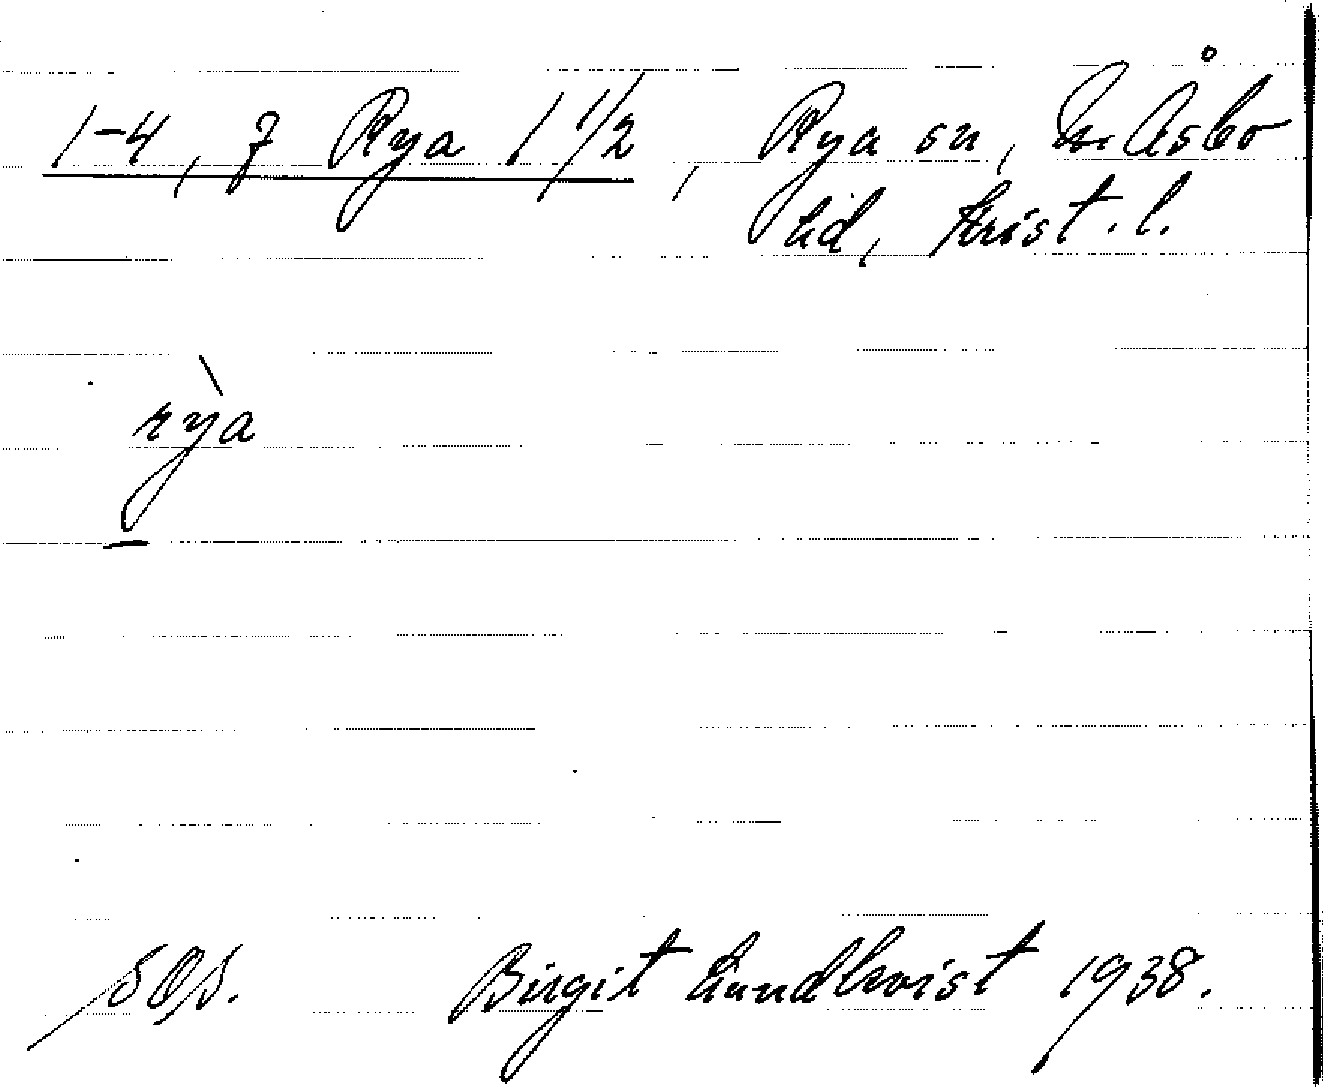 1-4, 7 Rya 1 1/2, Rya sn, N. Åsbo
hd, Krist. l.
rỳa
Birgit Lundkvist 1938.